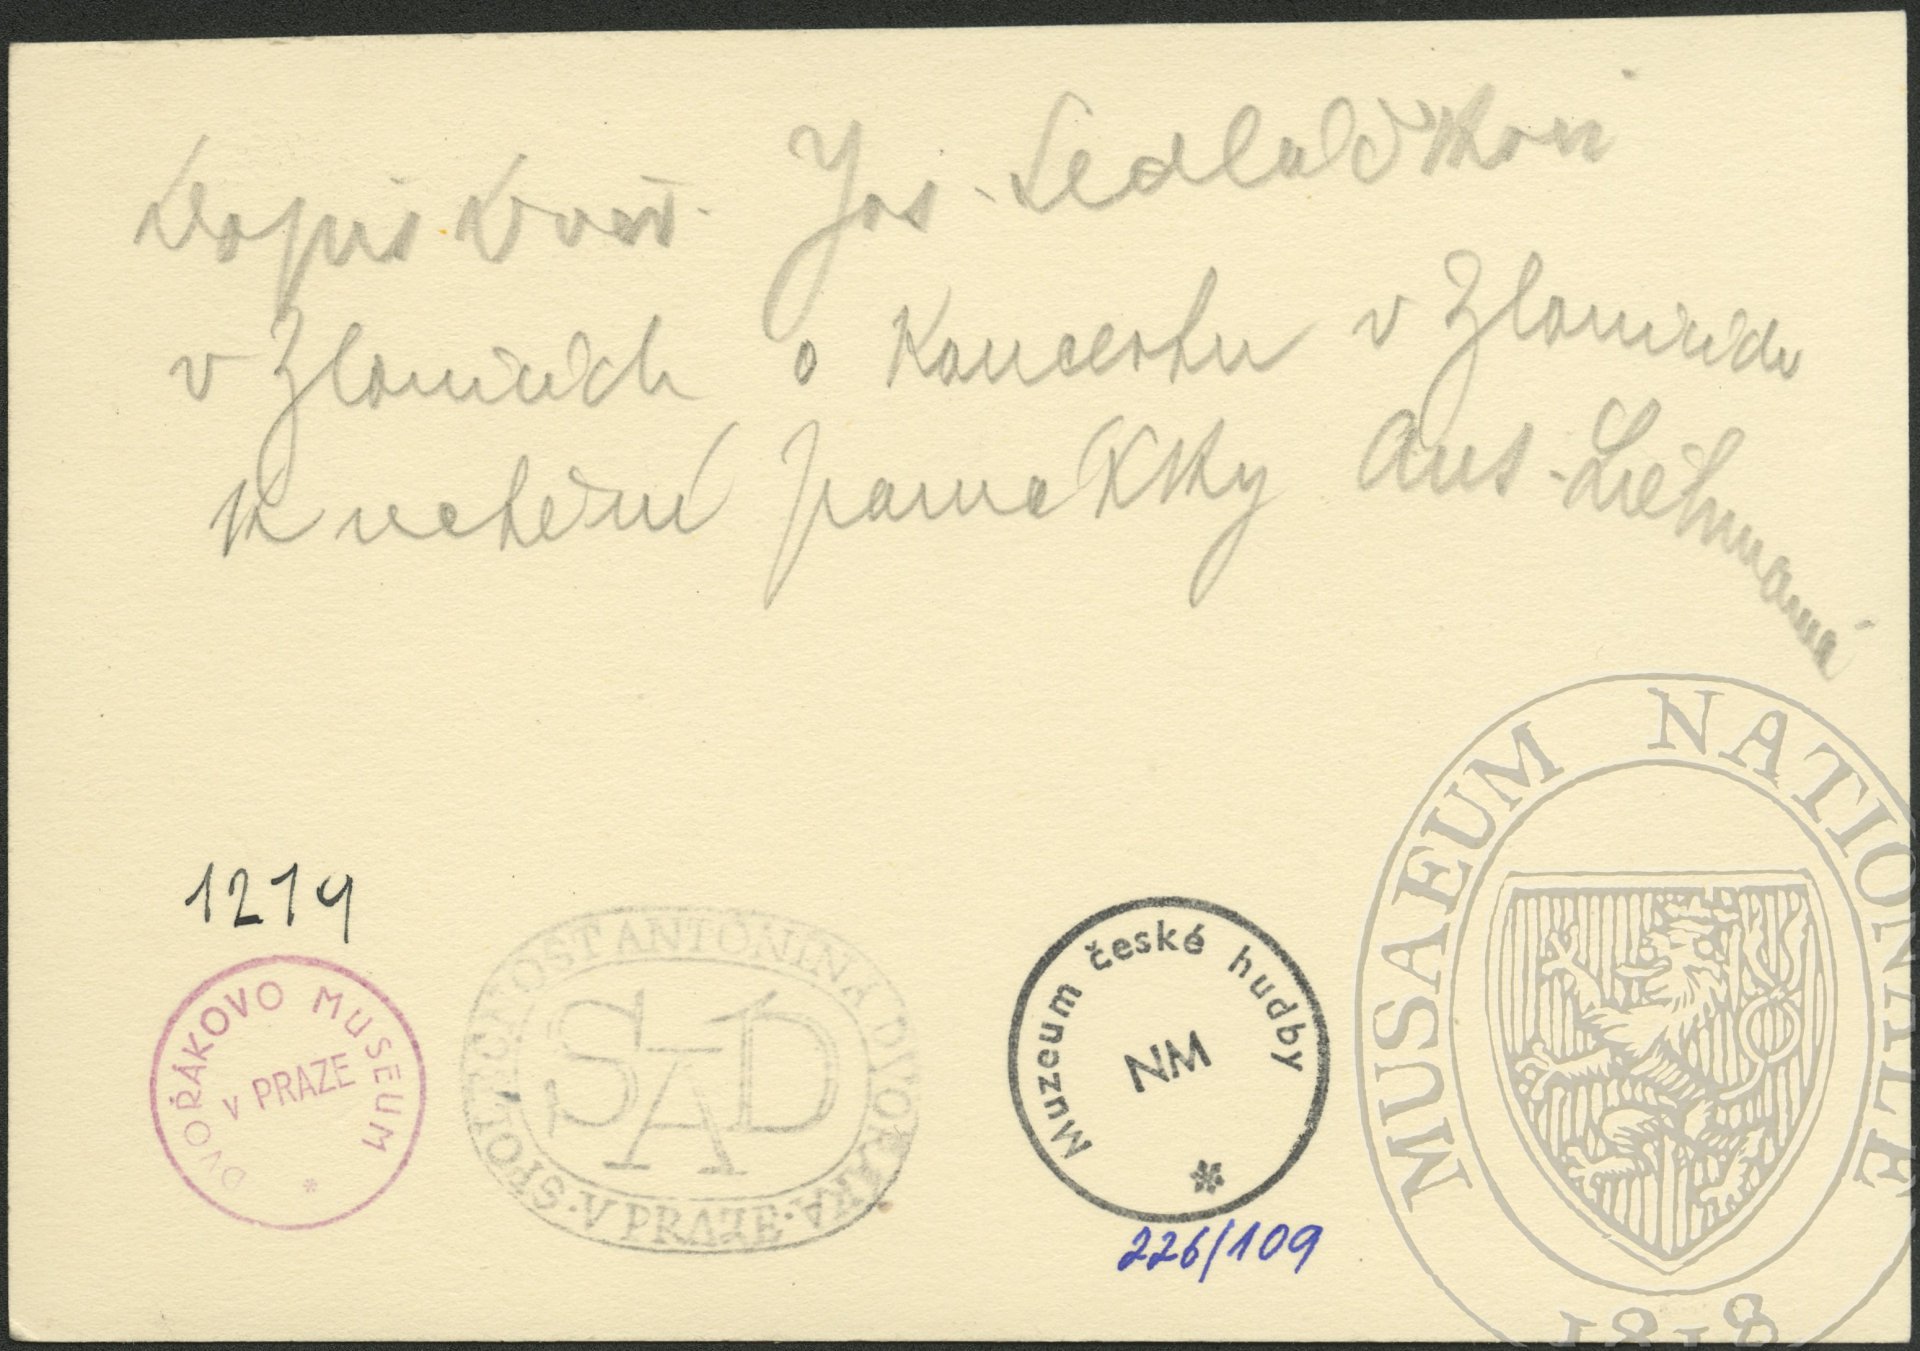 Dopis Dvoř. Jos. Sedláčkovi
v Zlonicích o koncertu v Zlonicích
k uctění památky Ant. Liehmanna
1214
DVOŘÁKOVO MUSEUM
v PRAZE
SPOLEČNOST ANTONÍNA DVOŘÁKA · V PRAZE ·
SAD
Muzeum české hudby
NM
226/109
MUSAEUM NATIONALE
1818